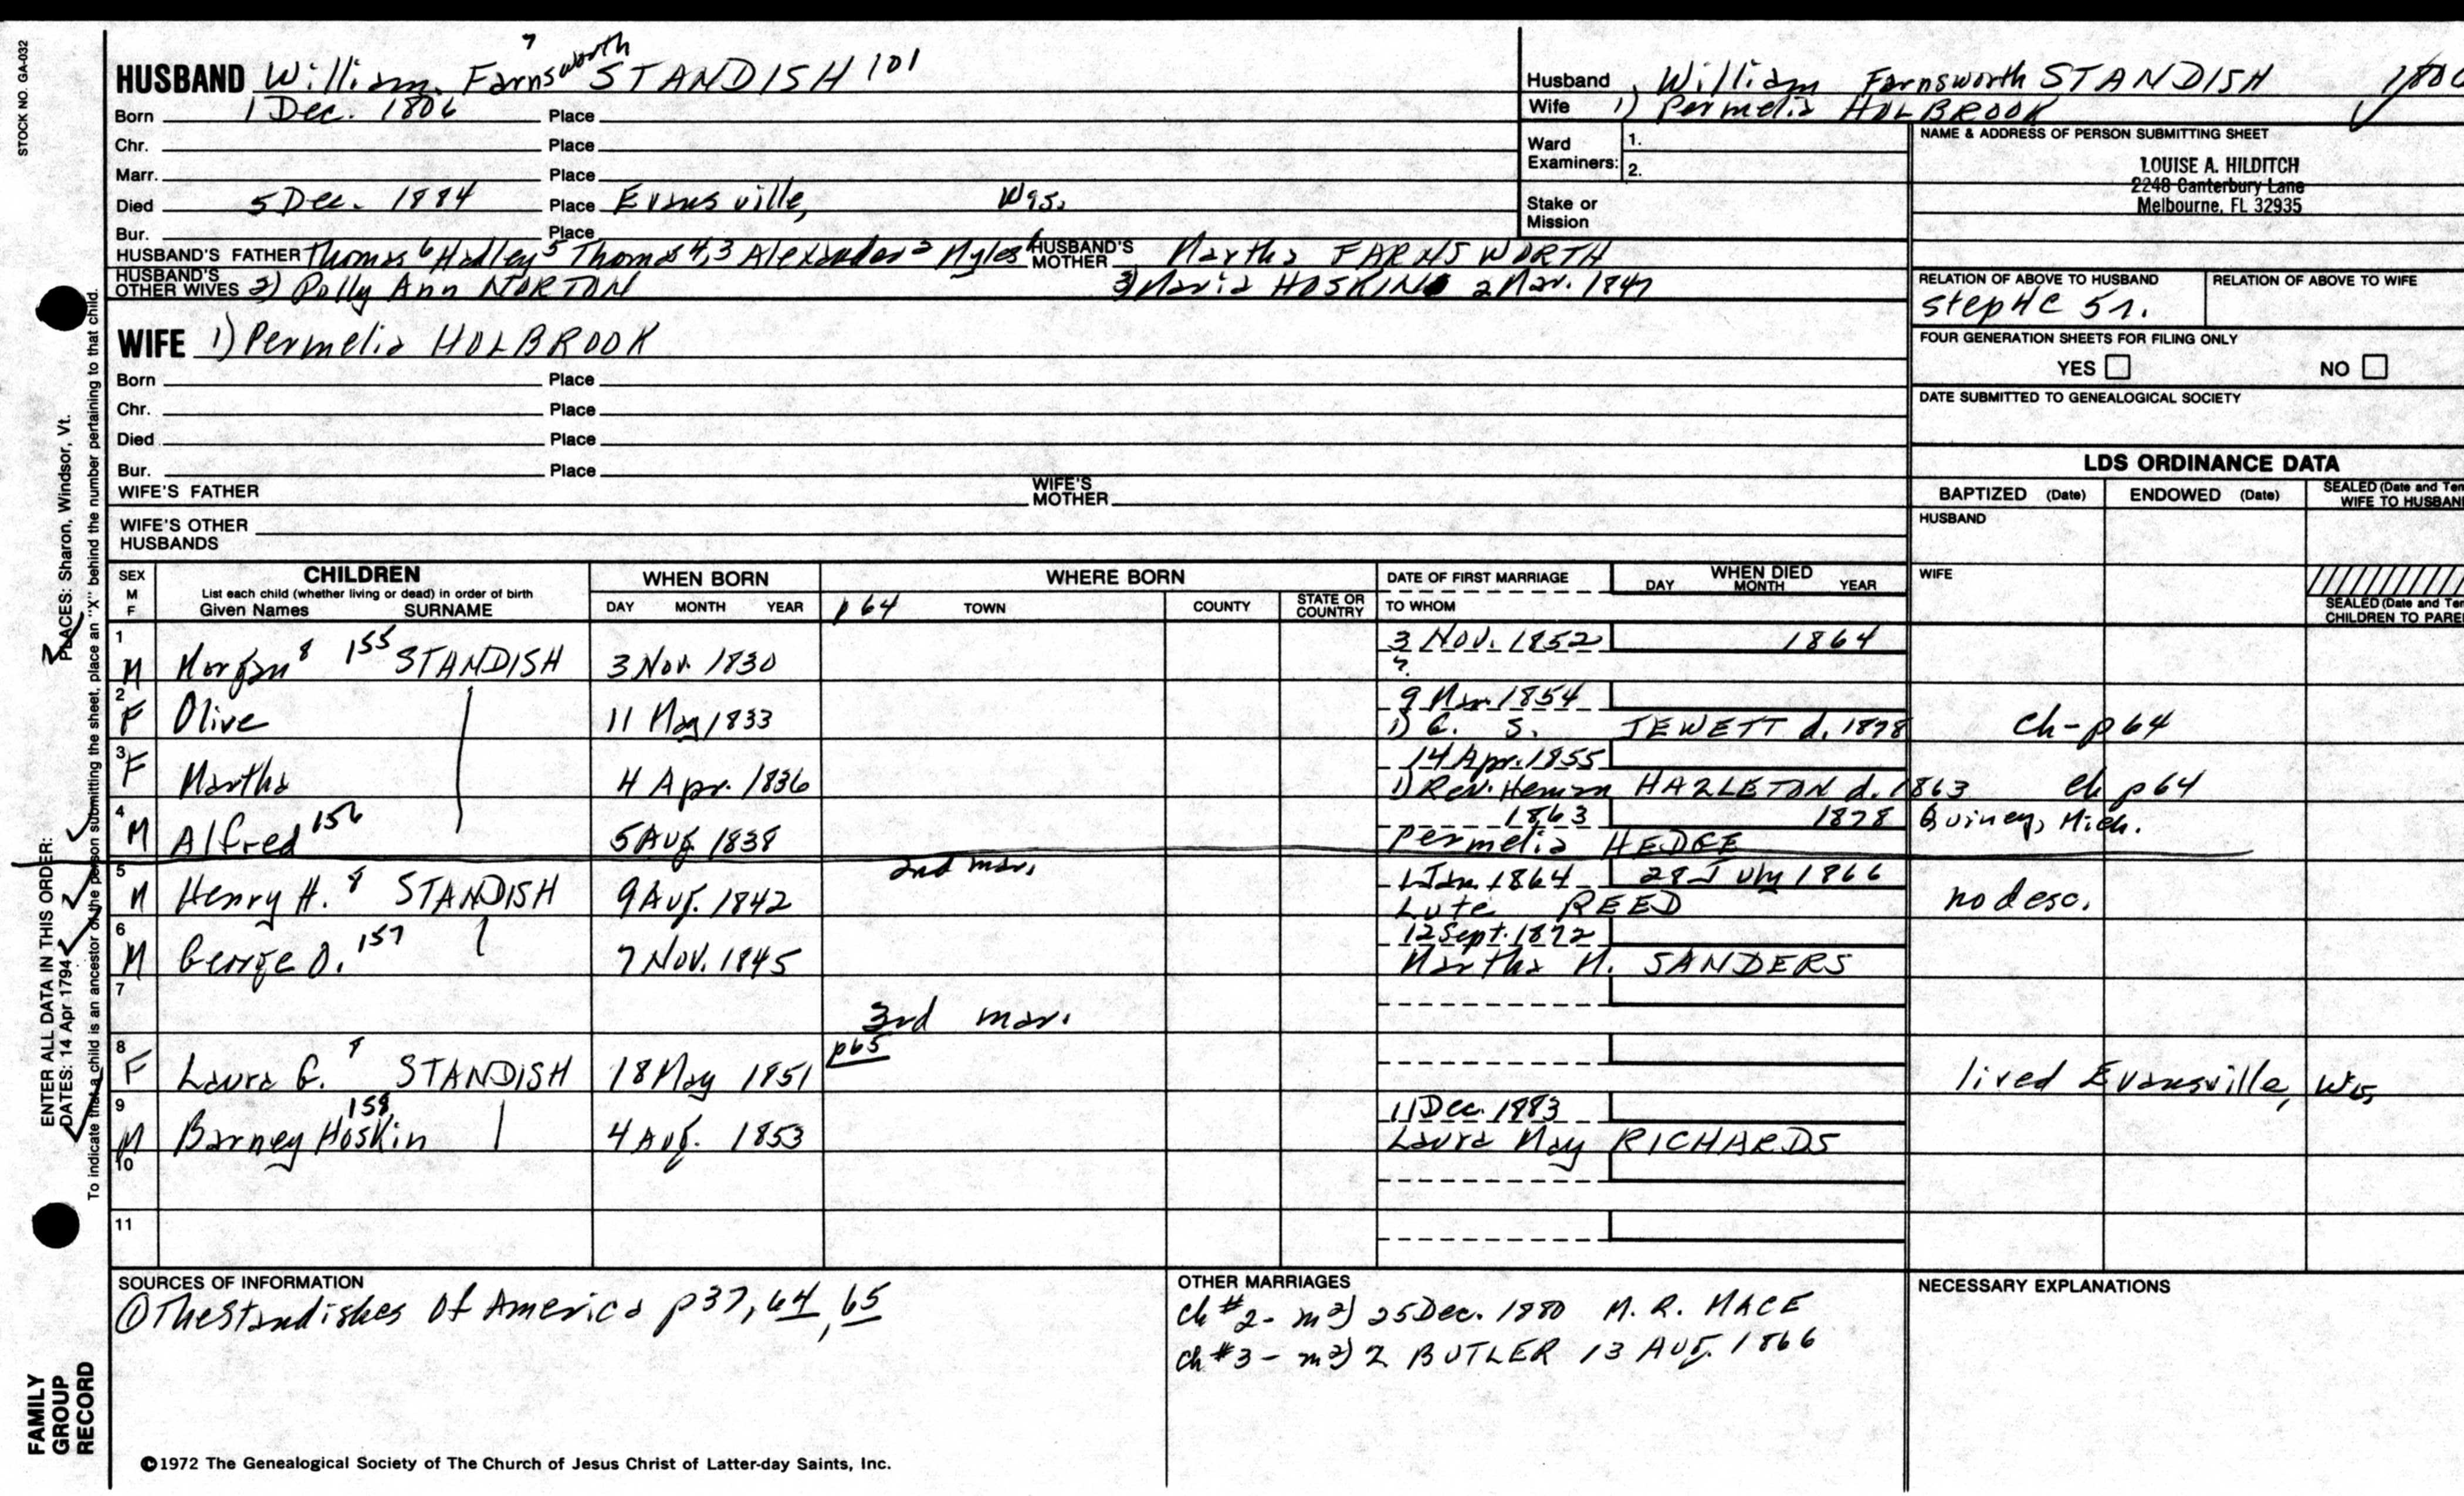 STOCK NO. GA-032
HUSBAND William Farnsworth 7 STANDISH 101
Born 1 Dec. 1806 Place
Chr. Place
Marr. Place
Died 5 Dec. 1884 Place Evansville, Wis.
Bur. Place
HUSBAND'S FATHER Thomas 6 Hadley 5 Thomas 4,3 Alexander 2 Myles 1 HUSBAND'S MOTHER Martha FARNSWORTH
HUSBAND'S OTHER WIVES 2) Polly Ann NORTON 3) Maria HOSKIN 2 Mar. 1847
WIFE 1) Permelia HOLBROOK
Born Place
Chr. Place
Died Place
Bur. Place
WIFE'S FATHER WIFE'S MOTHER
WIFE'S OTHER HUSBANDS
Husband William Farnsworth STANDISH
Wife 1) Permelia HOLBROOK
Ward Examiners: 1.
2.
Stake or Mission
NAME & ADDRESS OF PERSON SUBMITTING SHEET
LOUISE A. HILDITCH
2248 Canterbury Lane
Melbourne, FL 32935
RELATION OF ABOVE TO HUSBAND RELATION OF ABOVE TO WIFE
step 4C 5r.
FOUR GENERATION SHEETS FOR FILING ONLY
YES NO
DATE SUBMITTED TO GENEALOGICAL SOCIETY
LDS ORDINANCE DATA
BAPTIZED (Date) ENDOWED (Date) SEALED (Date and Tem
WIFE TO HUSBAN
HUSBAND
WIFE
SEALED (Date and Tem
CHILDREN TO PARE
SEX M F CHILDREN WHEN BORN WHERE BORN DATE OF FIRST MARRIAGE WHEN DIED
List each child (whether living or dead) in order of birth DAY MONTH YEAR
Given Names SURNAME DAY MONTH YEAR p 64 TOWN COUNTY STATE OR COUNTRY TO WHOM
1 3 Nov. 1852 1864
M Morgan 8 155 STANDISH 3 Nov. 1830 ?
2 9 Mar. 1854
F Olive 11 May 1833 1) C. S. JEWETT d. 1878 Ch-p 64
3 14 Apr. 1855
F Martha 4 Apr. 1836 1) Rev. Heman HAZLETON d. 1863 Ch p 64
4 1863 1878 Quincy, Mich.
M Alfred 156 5 Aug 1838 Permelia HEDGE
2nd mar.
5 1 Jan. 1864 28 July 1866
M Henry H. 8 STANDISH 9 Aug. 1842 Lute REED no desc.
6 12 Sept. 1872
M George O. 157 7 Nov. 1845 Martha M. SANDERS
7
3rd mar.
8 p65
F Laura G. 8 STANDISH 18 May 1851 lived Evansville, Wis.
9 11 Dec. 1883
M Barney Hoskin 158 4 Aug. 1853 Laura May RICHARDS
10
11
SOURCES OF INFORMATION
① The Standishes of America p 37, 64, 65
OTHER MARRIAGES
ch #2 - m 2) 25 Dec. 1880 M. R. MACE
ch #3 - m 2) Z BUTLER 13 Aug. 1866
NECESSARY EXPLANATIONS
©1972 The Genealogical Society of The Church of Jesus Christ of Latter-day Saints, Inc.
ENTER ALL DATA IN THIS ORDER:
DATES: 14 Apr 1794 PLACES: Sharon, Windsor, Vt.
To indicate that a child is an ancestor of the person submitting the sheet, place an "X" behind the number pertaining to that child.
FAMILY
GROUP
RECORD